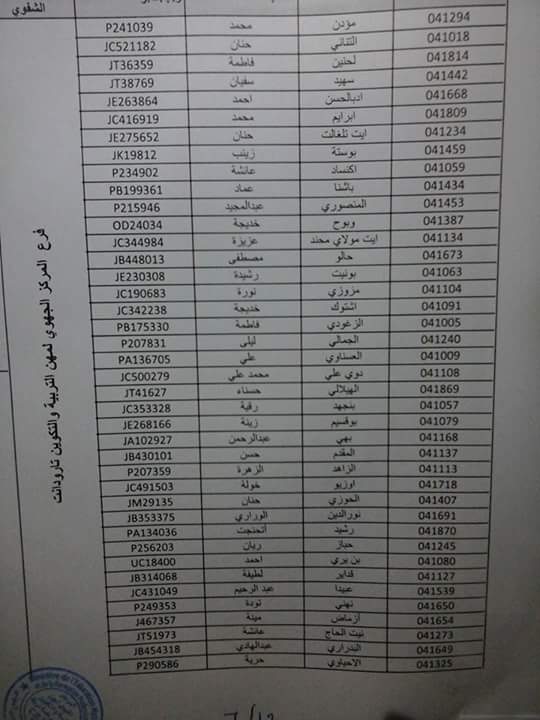 الشفوي
041294 مؤدن محمد P241039
041018 التناني حنان JC521182
041814 لحنين فاطمة JT36359
041442 سهيد سفيان JT38769
041668 ادبالحسن احمد JE263864
041809 ابرايم محمد JC416919
041234 ايت تلغالت حنان JE275652
041459 بوستة زينب JK19812
041059 اكنساد عائشة P234902
041434 باشنا عماد PB199361
041453 المنصوري عبدالمجيد P215946
041387 وبوح خديجة OD24034
041134 ايت مولاي محند عزيزة JC344984
041673 حالو مصطفى JB448013
041063 بونيت رشيدة JE230308
041104 مزوزي نورة JC190683
041091 اشتوك خديجة JC342238
041005 الزغودي فاطمة PB175330
041240 الجمالي ليلى P207831
041009 العسناوي علي PA136705
041108 دوي علي محمد علي JC500279
041869 الهيلالي حسناء JT41627
041057 بنجهد رقية JC353328
041079 بوقسيم زينة JE268166
041168 بهي عبدالرحمن JA102927
041137 المقدم حسن JB430101
041113 الزاهد الزهرة P207359
041718 اوزيو خولة JC491503
041407 الحوزي حنان JM29135
041691 نورالدين الوراري JB353375
041870 رشيد أتحنجت PA134036
041245 حباز ريان P256203
041080 بن بري احمد UC18400
041127 قداير لطيفة JB314068
041539 عبيدا عبد الرحيم JC431049
041650 نهني تودة P249353
041654 أزماض مينة J467357
041273 نيت الحاج عائشة JT51973
041649 البدراري عبدالهادي JB454318
041325 الاحياوي حرية P290586
فرع المركز الجهوي لمهن التربية والتكوين تارودانت